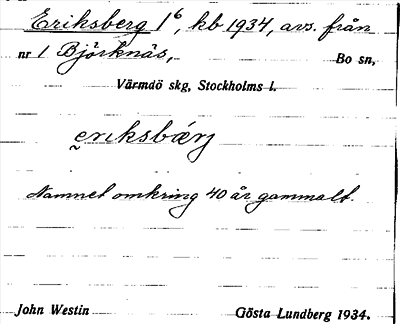 Eriksberg 1⁶, kb 1934, avs. från
nr 1 Björknäs, Bo sn,
Värmdö skg, Stockholms l.
e̯riksbærj
Namnet omkring 40 år gammalt.
John Westin Gösta Lundberg 1934.